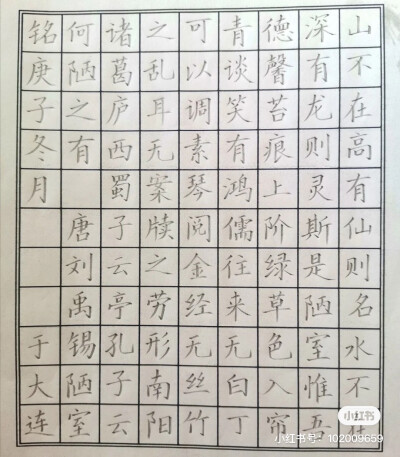 山不在高有仙则名水不在
深有龙则灵斯是陋室惟吾
德馨苔痕上阶绿草色入帘
青谈笑有鸿儒往来无白丁
可以调素琴阅金经无丝竹
之乱耳无案牍之劳形南阳
诸葛庐西蜀子云亭孔子云
何陋之有 唐刘禹锡陋室
铭庚子冬月 于大连
小红书
小红书号: 102009659